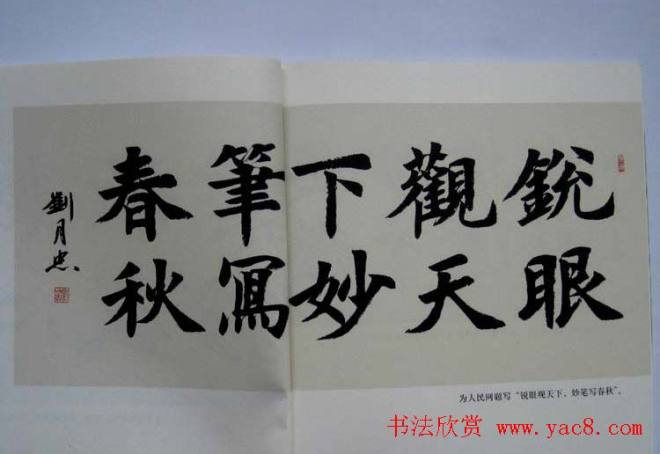 銳眼
觀天
下妙
筆寫
春秋
劉月忠
为人民网题写“锐眼观天下，妙笔写春秋”。
书法欣赏 www.yac8.com